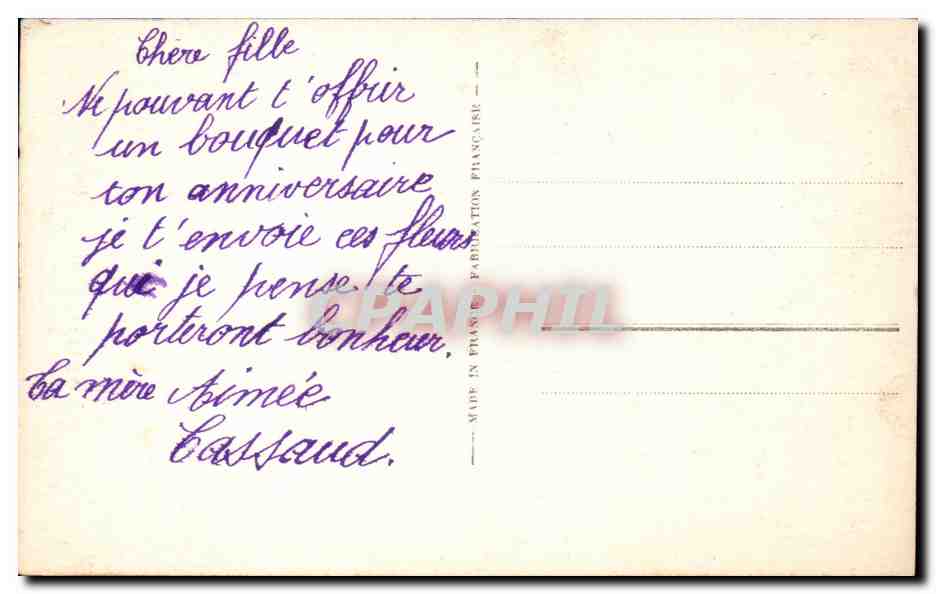 Chère fille
Ne pouvant t'offrir
un bouquet pour
ton anniversaire
je t'envoie ces fleurs
qui je pense te
porteront bonheur.
Ta mère Aimée
Cassaud.
MADE IN FRANCE - FABRICATION FRANÇAISE
CPAPHIL